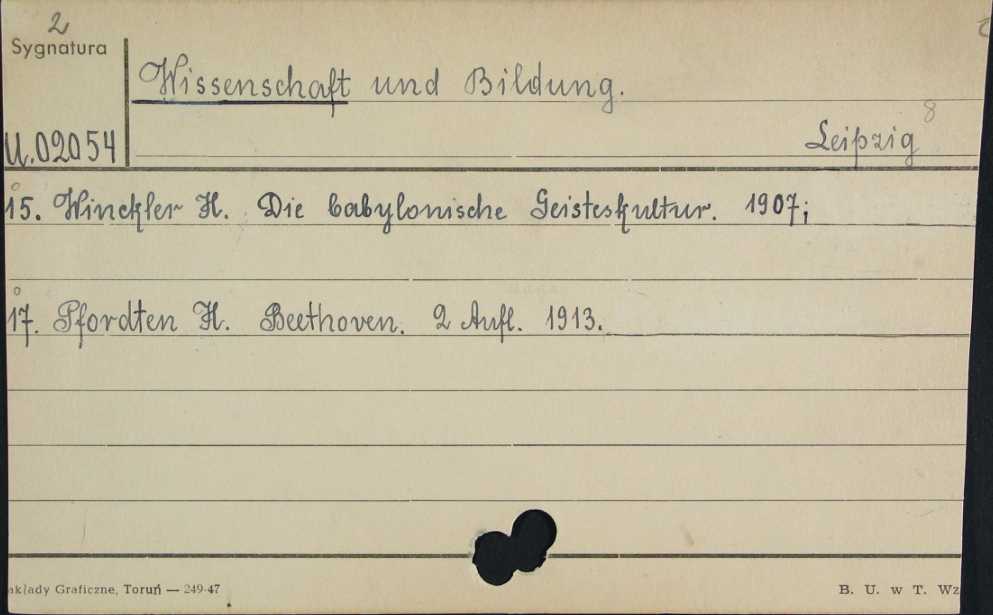 2
Sygnatura
Wissenschaft und Bildung.
8
U.02054
Leipzig
15. Winckler H. Die babylonische Geisteskultur. 1907;
17. Pfordten H. Beethoven. 2 Aufl. 1913.
akłady Graficzne, Toruń — 249-47
B. U. w T. Wz